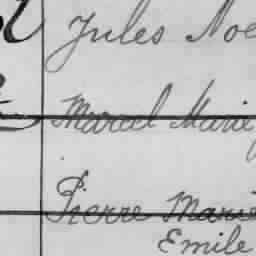 Jules Noe
Marcel Marie
Pierre Marie
Emile